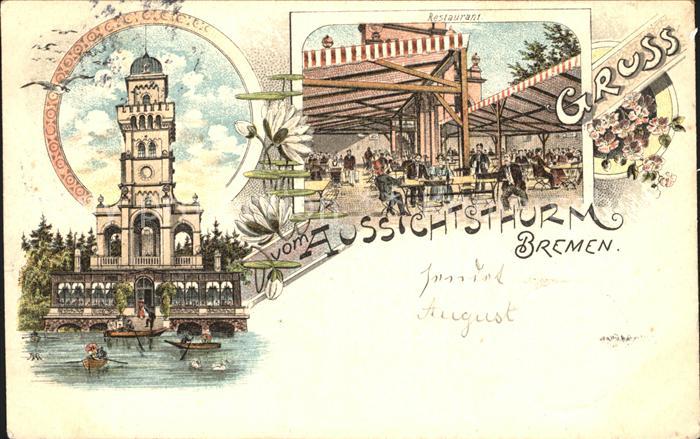 Restaurant
GRUSS
vom AUSSICHTSTHURM
BREMEN.
sendet
August